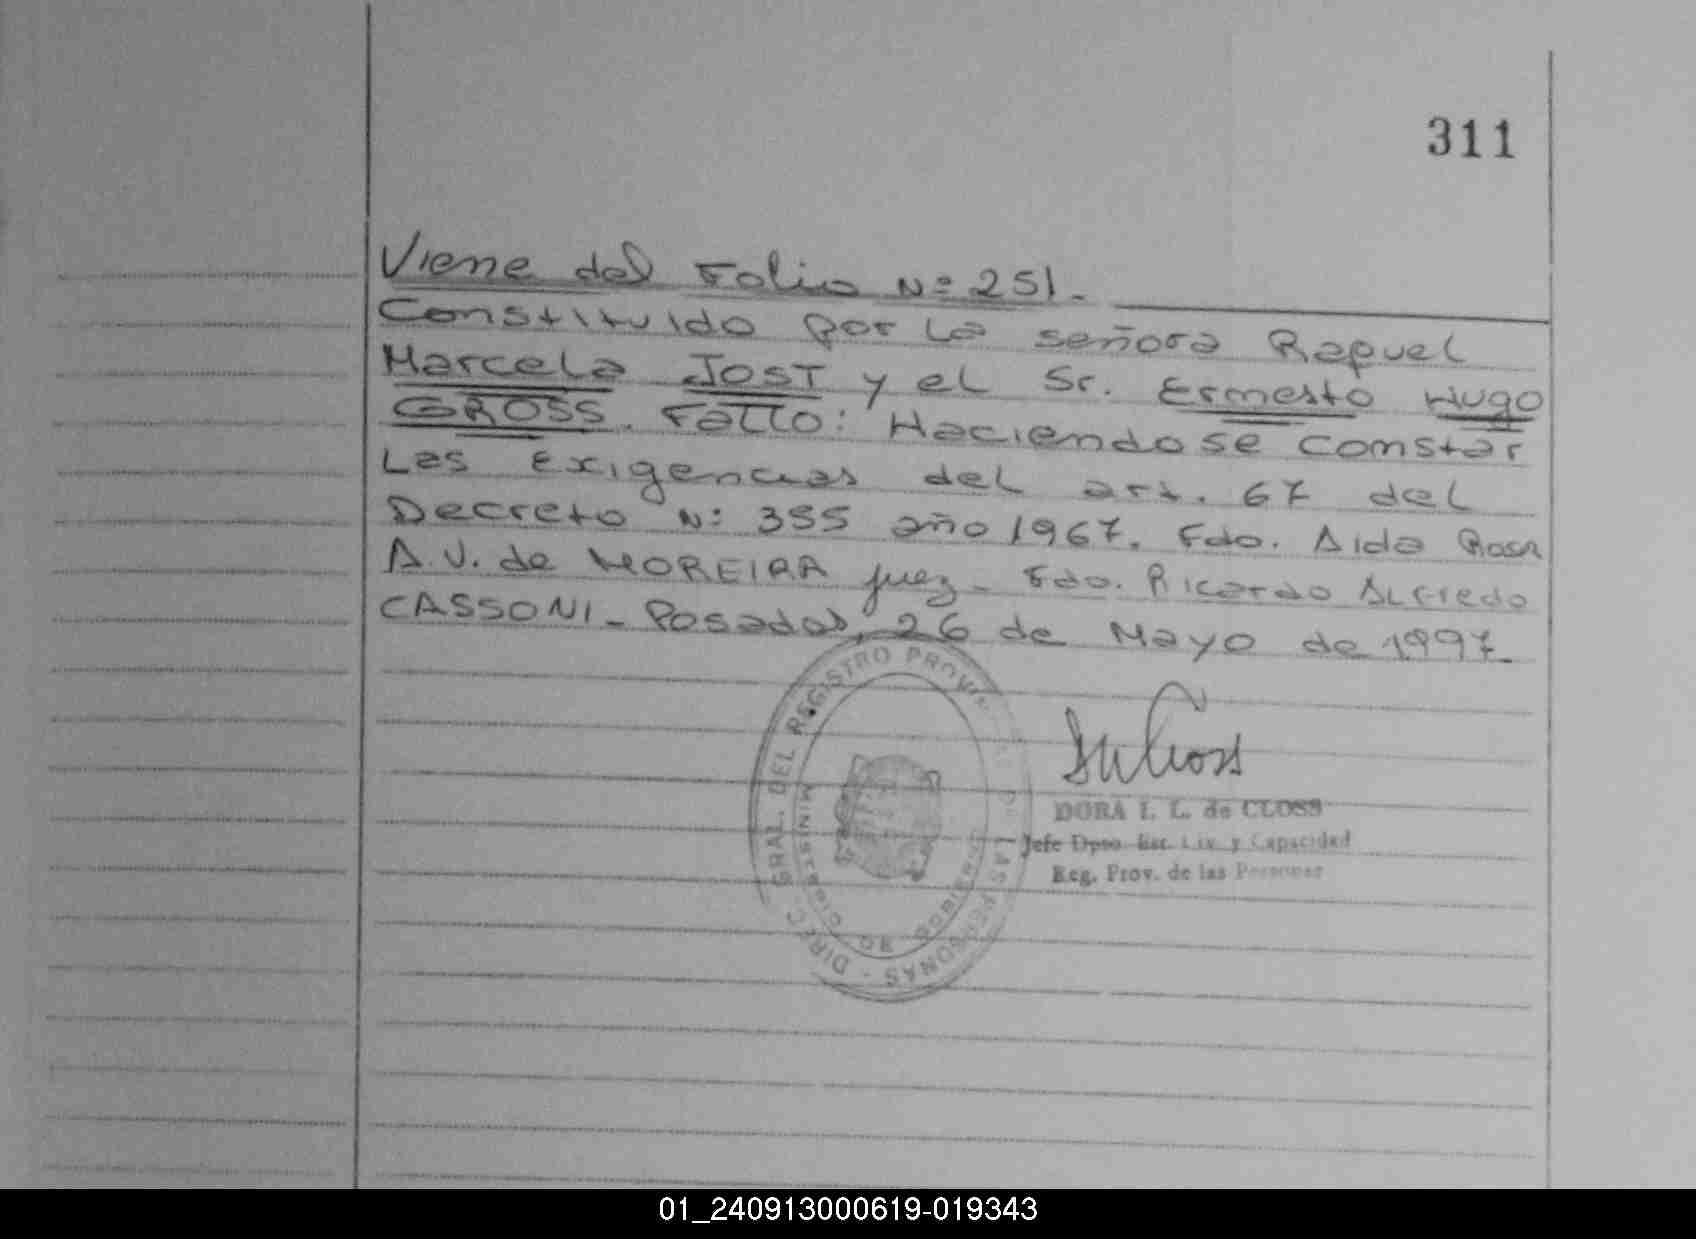 311
Viene del Folio Nº 251.-
Constituido por la señora Raquel
Marcela JOST y el Sr. Ernesto Hugo
GROSS. Fallo: Haciendose constar
Las Exigencias del art. 67 del
Decreto Nº 355 año 1967. Fdo. Aida Rosa
A.V. de MOREIRA juez - Fdo. Ricardo Alfredo
CASSONI - Posadas, 26 de Mayo de 1997.
DIREC. GRAL. DEL REGISTRO PROVINCIAL DE LAS PERSONAS -
MINISTERIO DE GOBIERNO
DORA I. L. de CLOSS
Jefe Dpto. Esc. Liv. y Capacidad
Reg. Prov. de las Personas
01_240913000619-019343